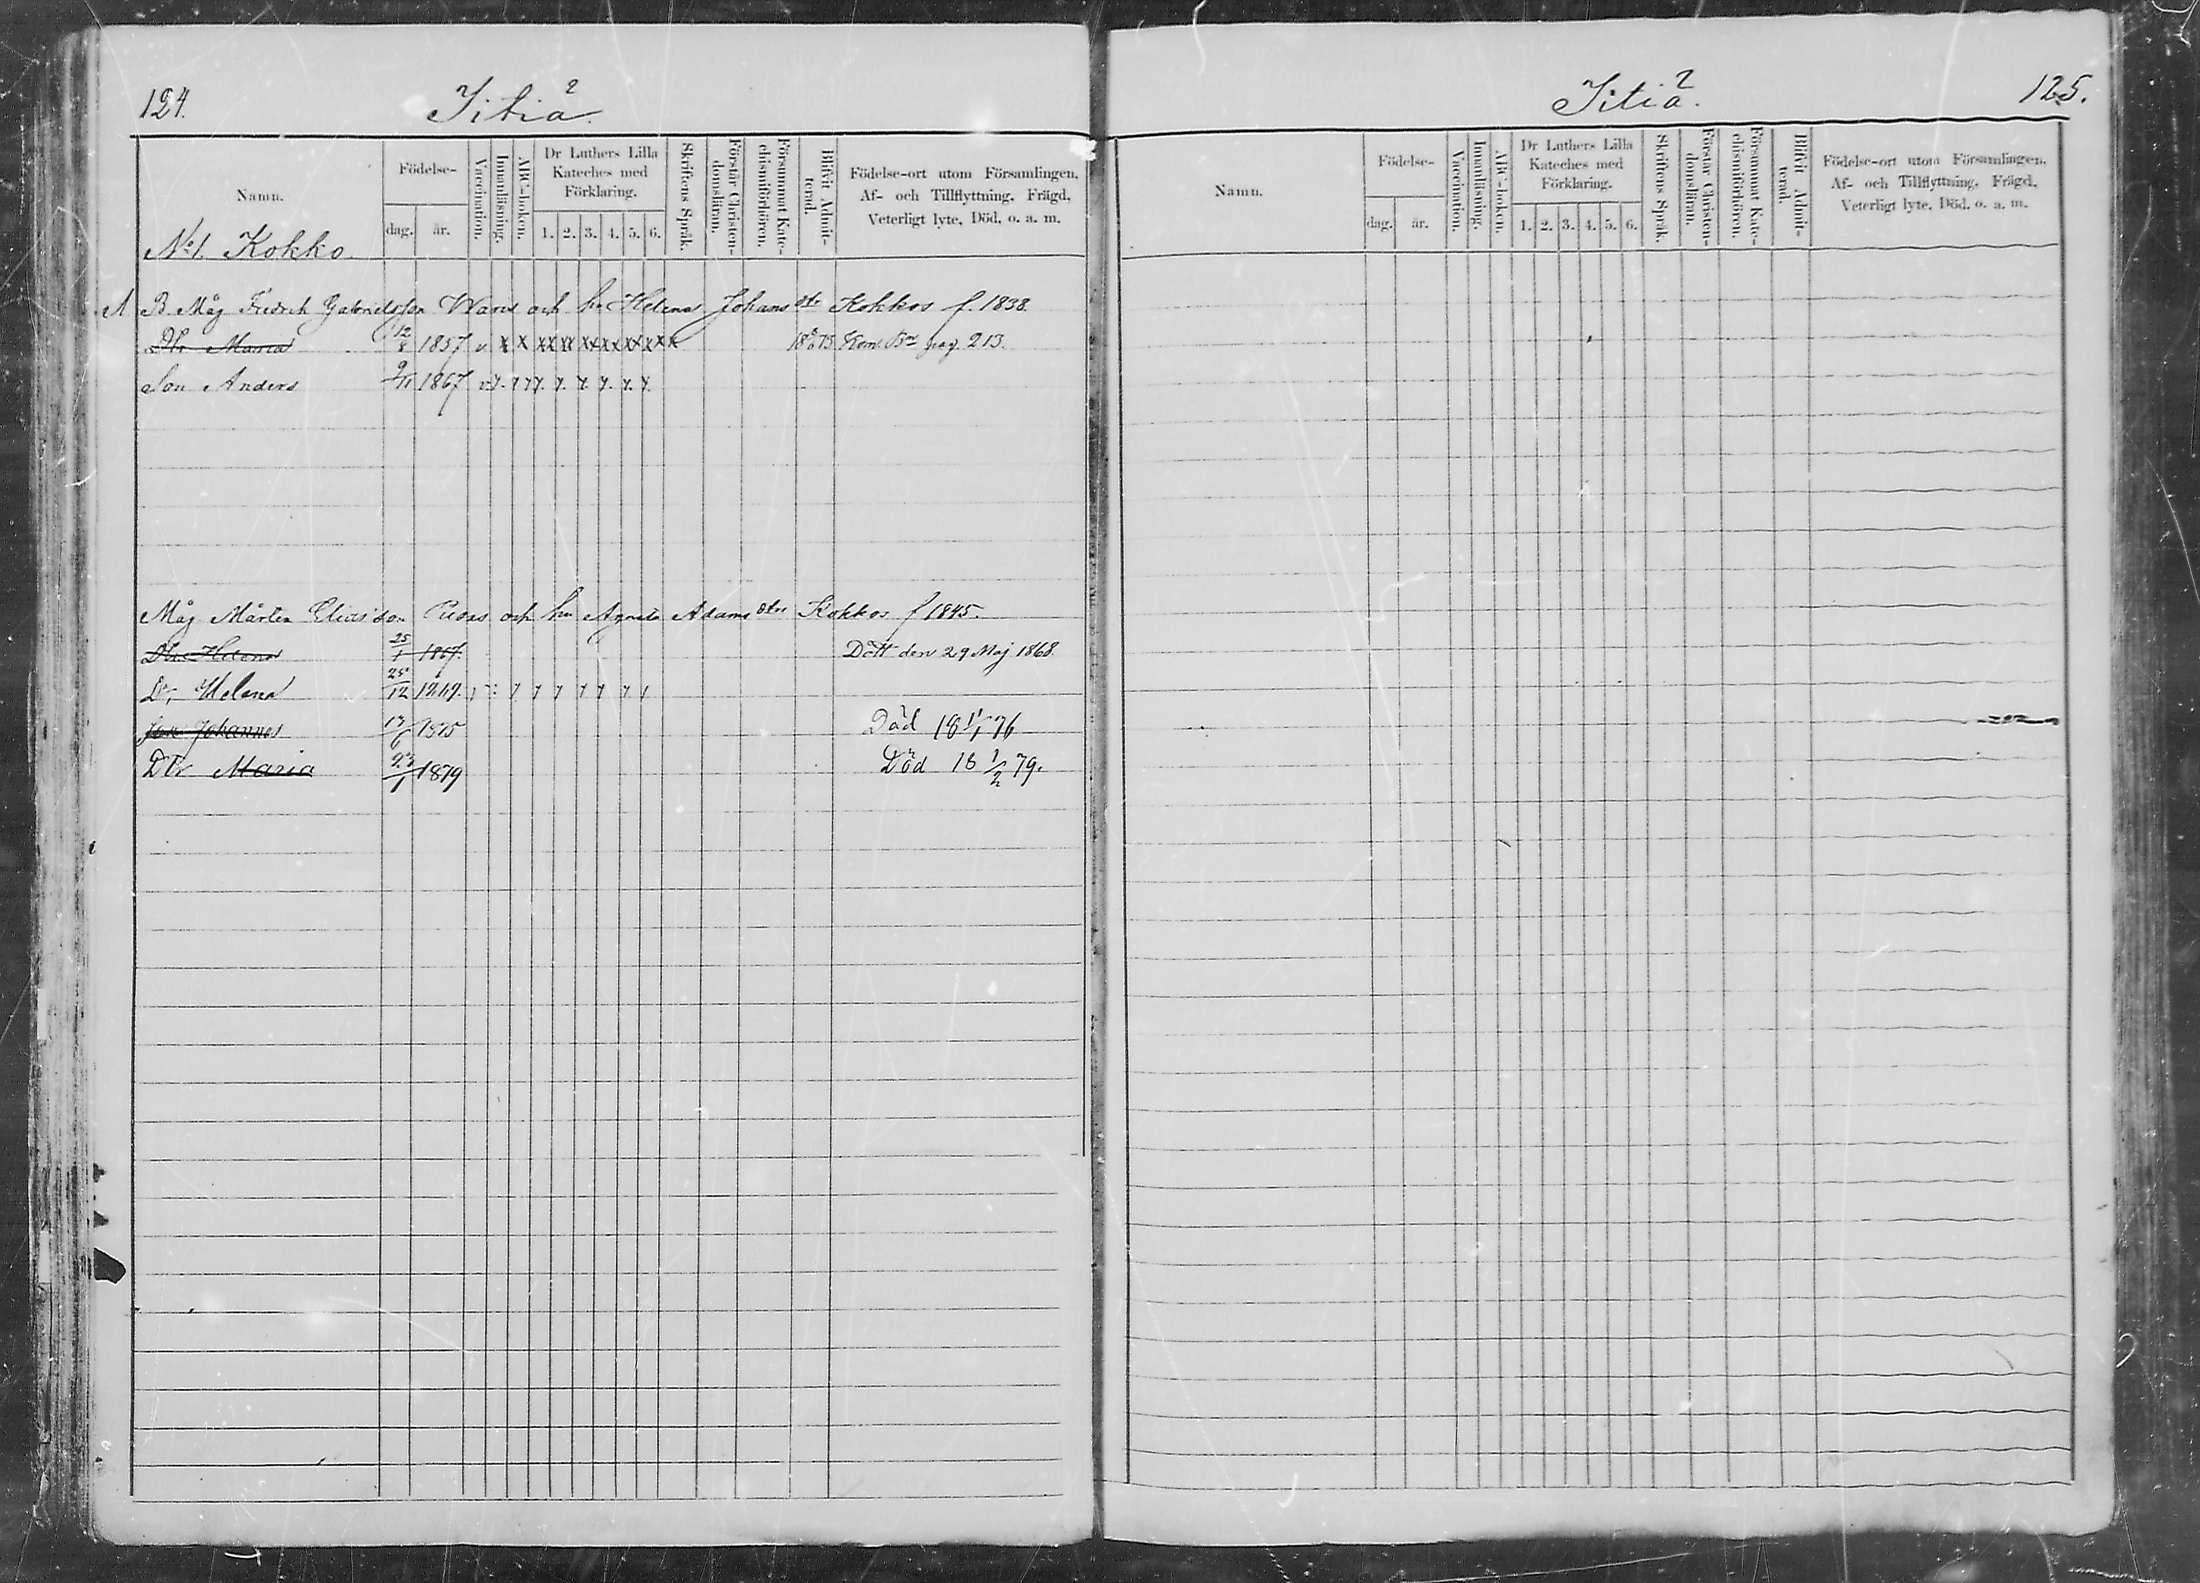 124.
Jitiä.
Namn.
Födelse-
dag.
år.
Vaccination.
Innanläsning.
ABC-boken.
Dr Luthers Lilla
Kateches med
Förklaring.
1. 2. 3. 4. 5. 6.
Skriftens Språk.
Förstår Christen-
domsläran.
Försummat Kate-
chismiförhören.
Blifvit Admit-
terad.
Födelse-ort utom Församlingen,
Af- och Tillflyttning, Frägd,
Veterligt lyte, Död, o. a. m.
No 1. Kokko.
B. Måg Fredrik Gabrielsson och hu Helena Johansdtr Kokkos f. 1838.
Dtr Maria 12/8 1857 v. x x xx xx xx xx xx xx 75 Kom. Bn pag. 213.
Son Anders 9/11 1867
Måg Mårten Eliasson och hu Agneta Adamsdtr Kokkos f 1845.
Dtr Helena 25/1 1867. Dött den 29 Maj 1868.
Dtr Helena 25/12
Son Johannes 1875 Död 18 1/1 76
Dtr Maria 23/1 1879 Död 18 1/2 79.
Jitiä.
125.
Namn.
Födelse-
dag.
år.
Vaccination.
Innanläsning.
ABC-boken.
Dr Luthers Lilla
Kateches med
Förklaring.
1. 2. 3. 4. 5. 6.
Skriftens Språk.
Förstår Christen-
domsläran.
Försummat Kate-
chismiförhören.
Blifvit Admit-
terad.
Födelse-ort utom Församlingen,
Af- och Tillflyttning, Frägd,
Veterligt lyte, Död, o. a. m.